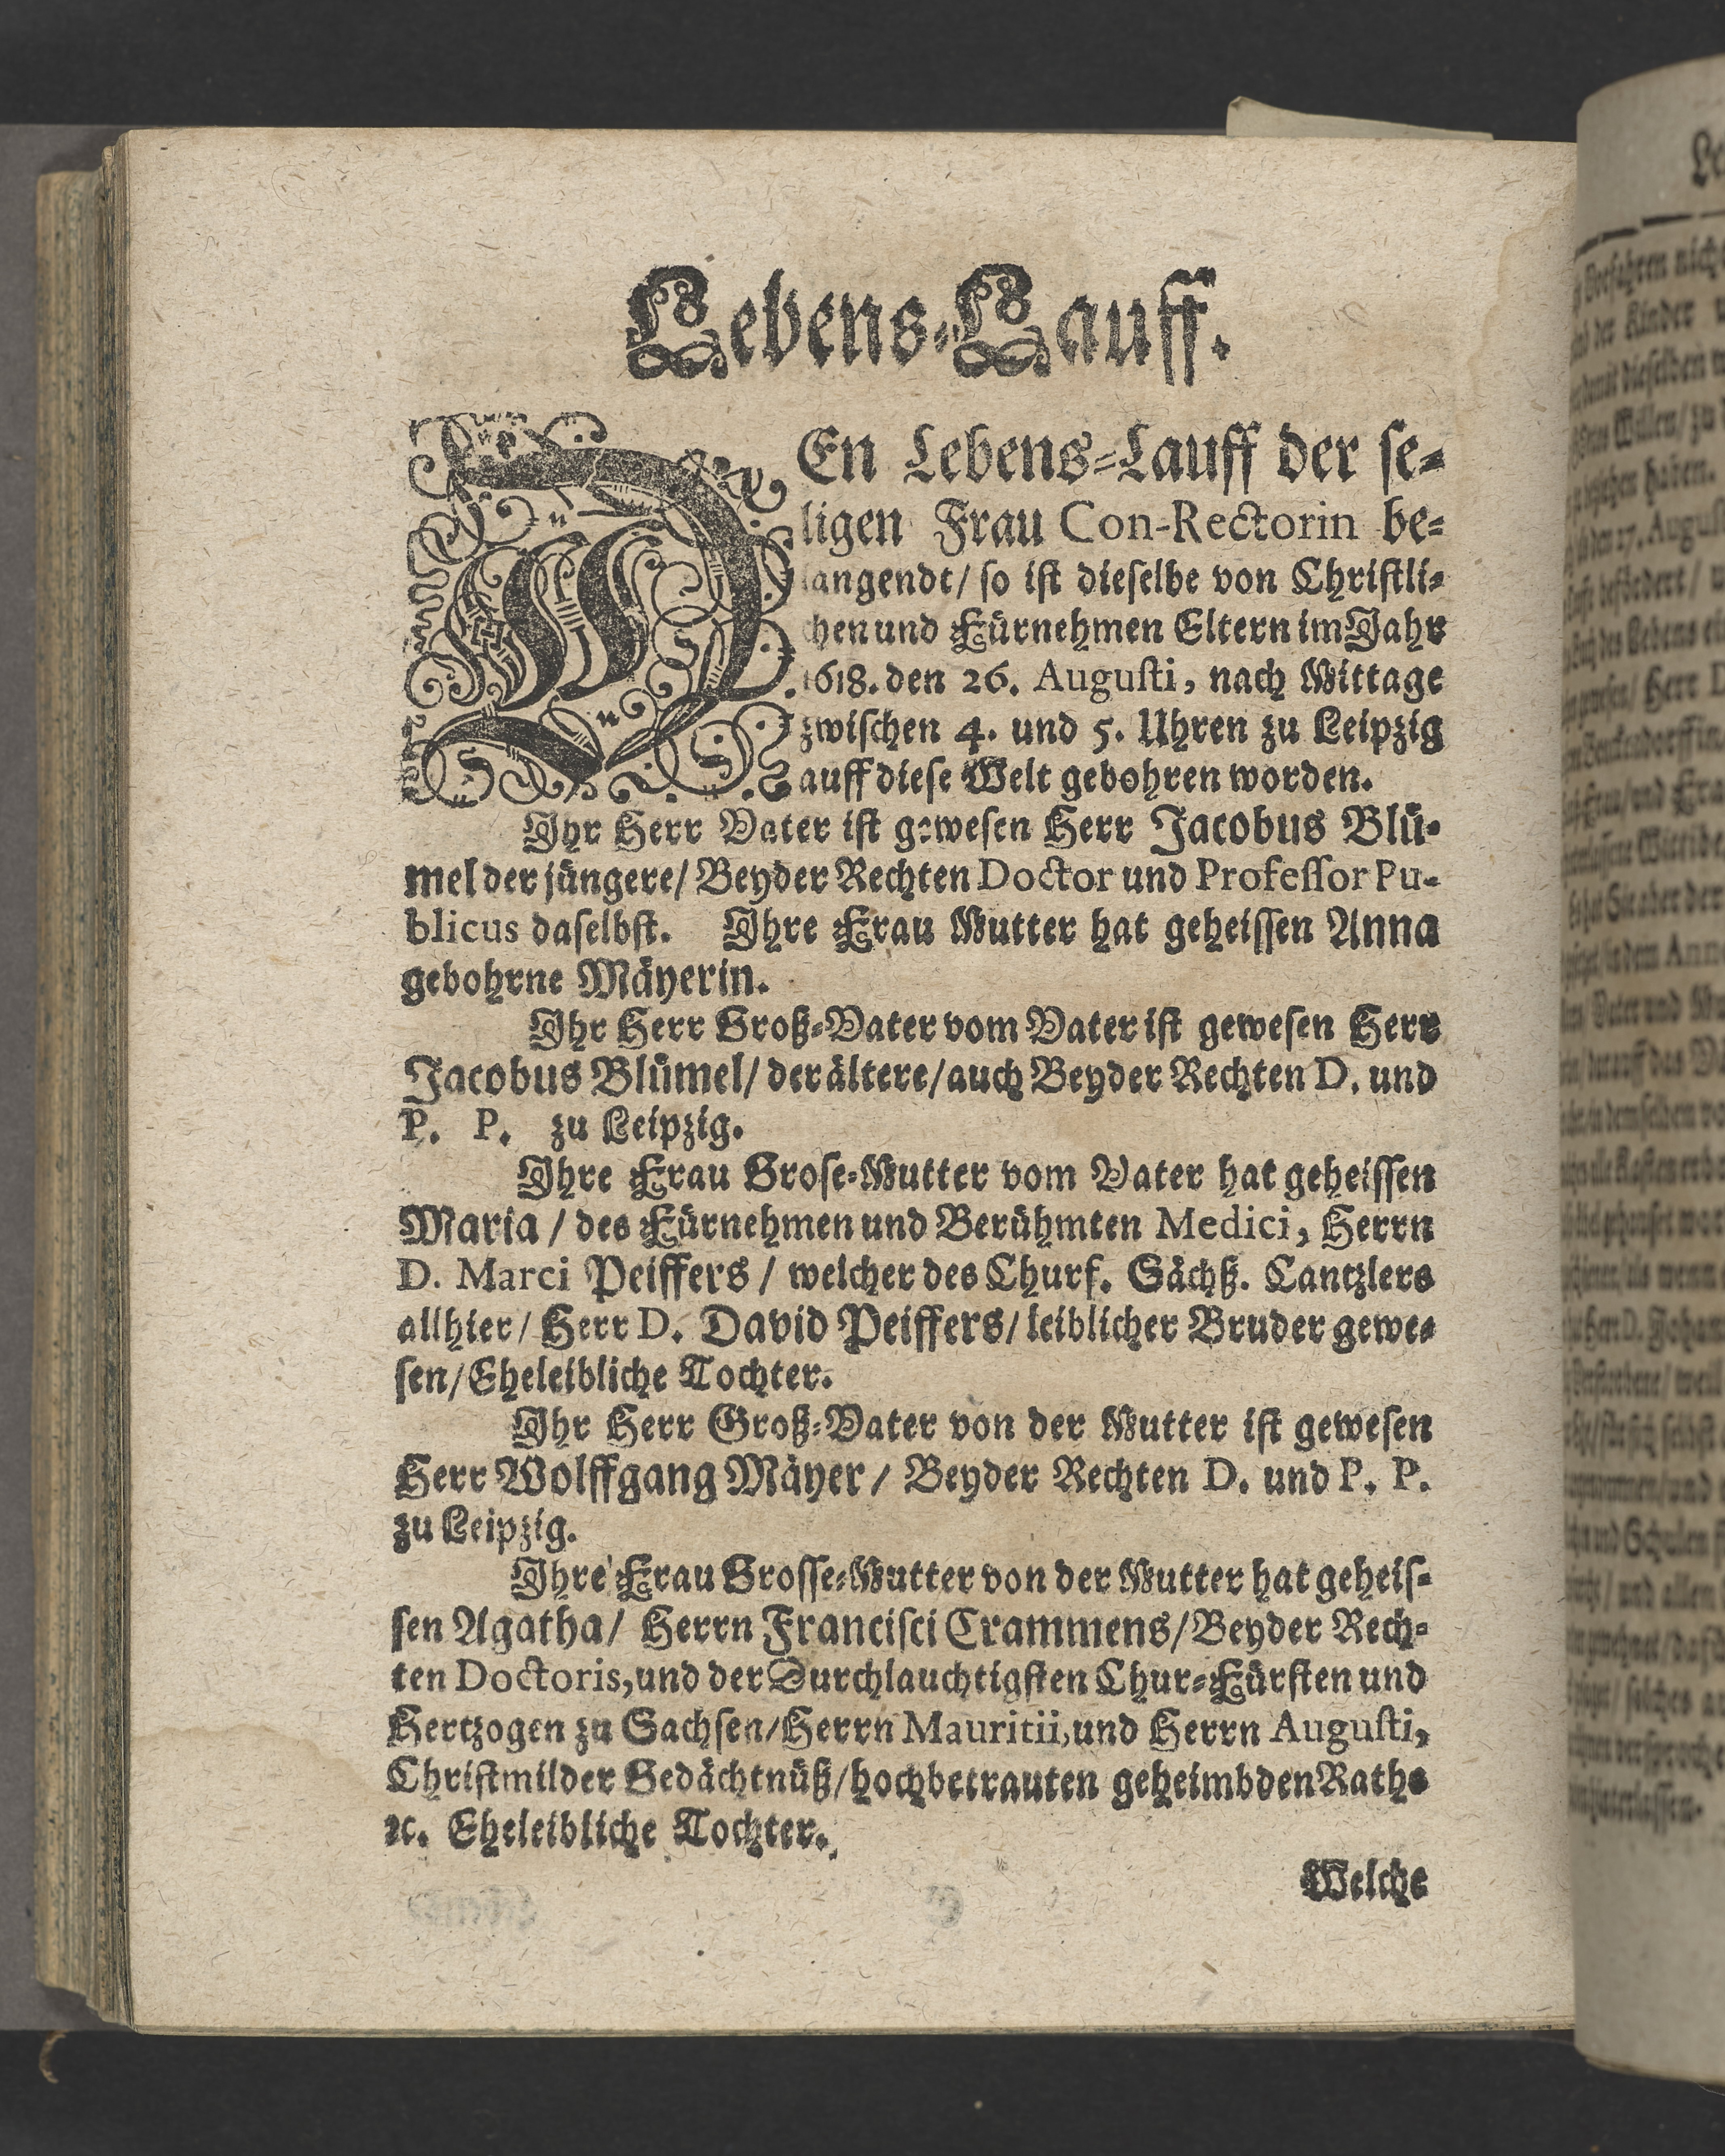 Lebens-Lauff.
DEn Lebens-Lauff der se-
ligen Frau Con-Rectorin be-
langendt/ so ist dieselbe von Christli-
chen und Fürnehmen Eltern im Jahr
1618. den 26. Augusti, nach Mittage
zwischen 4. und 5. Uhren zu Leipzig
auff diese Welt gebohren worden.
Ihr Herr Vater ist gewesen Herr Jacobus Blü-
mel der jüngere/ Beyder Rechten Doctor und Professor Pu-
blicus daselbst. Ihre Frau Mutter hat geheissen Anna
gebohrne Mäyerin.
Ihr Herr Groß-Vater vom Vater ist gewesen Herr
Jacobus Blümel/ der ältere/ auch Beyder Rechten D. und
P. P. zu Leipzig.
Ihre Frau Grose-Mutter vom Vater hat geheissen
Maria / des Fürnehmen und Berühmten Medici, Herrn
D. Marci Peiffers / welcher des Churf. Sächß. Cantzlers
allhier/ Herr D. David Peiffers/ leiblicher Bruder gewe-
sen/ Eheleibliche Tochter.
Ihr Herr Groß-Vater von der Mutter ist gewesen
Herr Wolffgang Mäyer / Beyder Rechten D. und P. P.
zu Leipzig.
Ihre Frau Grosse-Mutter von der Mutter hat geheis-
sen Agatha/ Herrn Francisci Crammens/ Beyder Rech-
ten Doctoris, und der Durchlauchtigsten Chur-Fürsten und
Hertzogen zu Sachsen/ Herrn Mauritii, und Herrn Augusti,
Christmilder Gedächtnüß/ hochbetrauten geheimbden Raths
ꝛc. Eheleibliche Tochter.
Welche